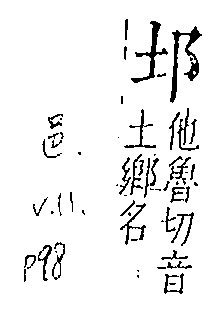 他魯切音
土鄉名
邑.
v.11.
p98